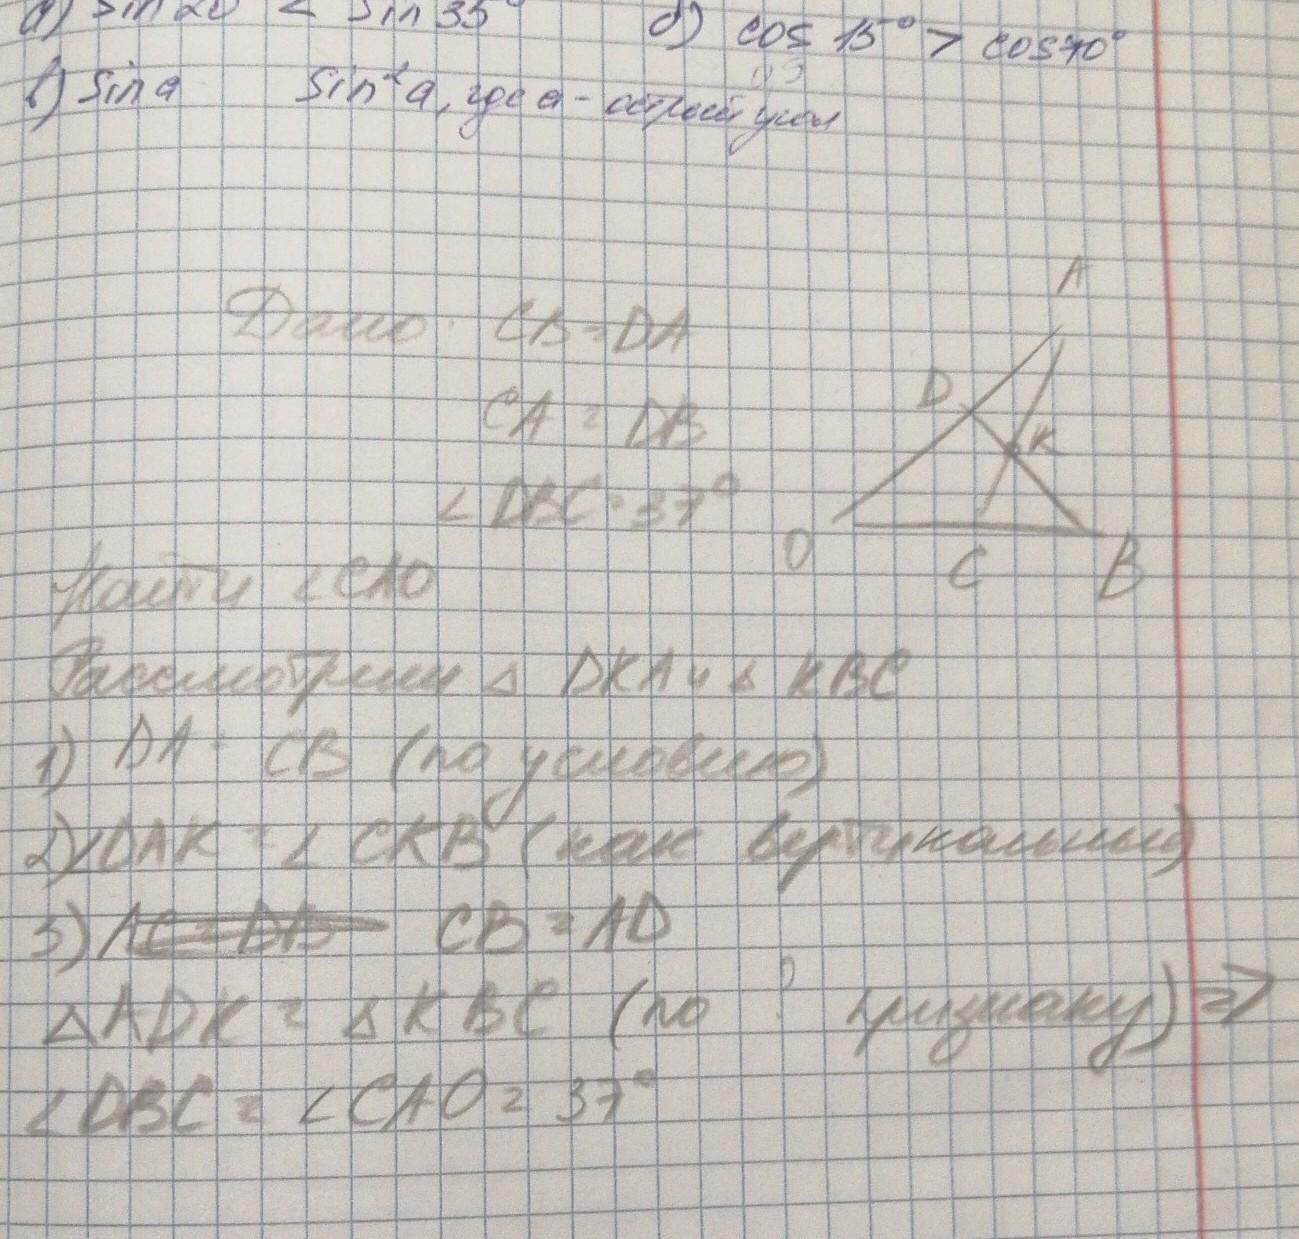 а) sin 20° < sin 35° б) cos 15° > cos 70°
в) sin a sin² a, где a - острый угол
Дано: CB = DA
CA = DB
∠DBC = 37°
Найти ∠CAO
A
D
K
O
C
B
Рассмотрим △ DKA и △ KBC
1) DA = CB (по условию)
2) ∠DAK = ∠CKB (как вертикальные)
3) AC = DB CB = AD
△ADK = △KBC (по ? признаку) =>
∠DBC = ∠CAO = 37°